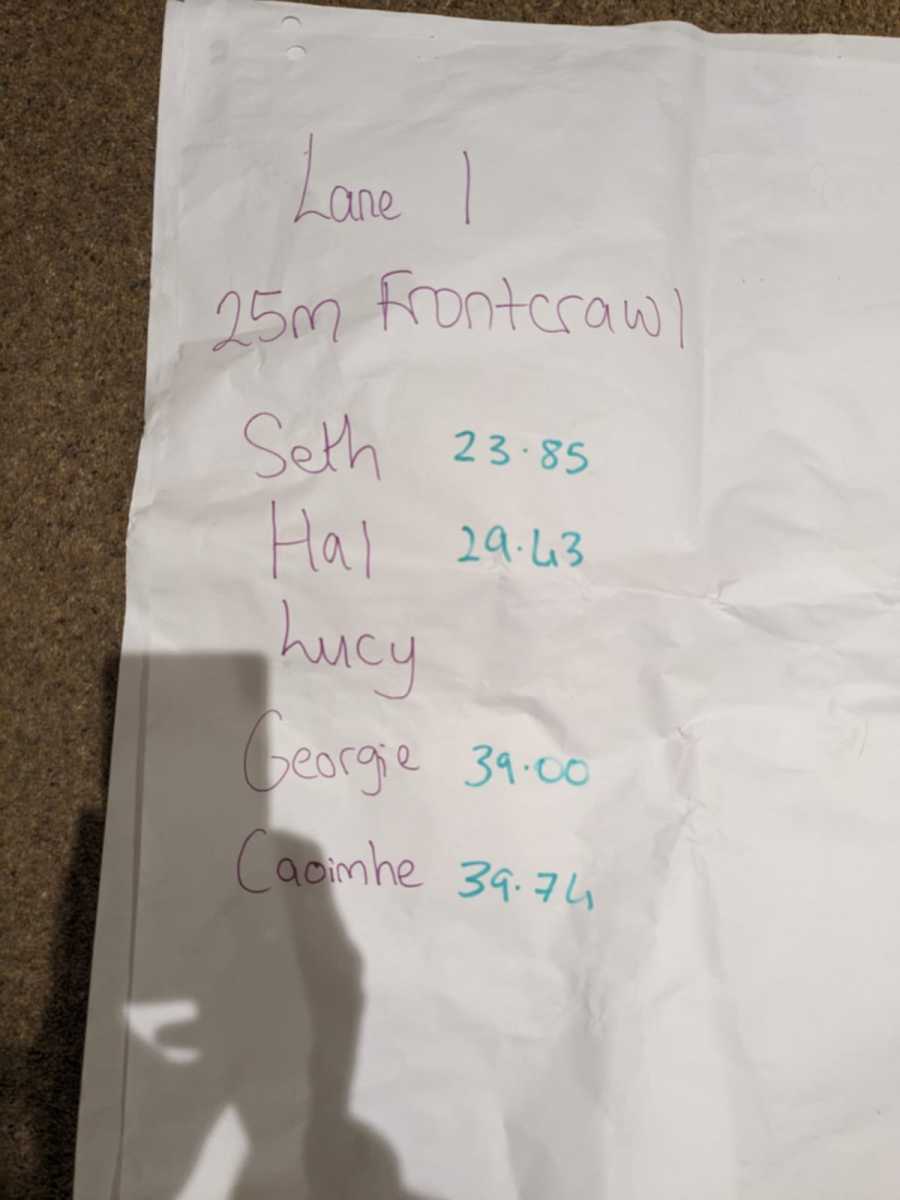 Lane 1
25m Frontcrawl
Seth 23.85
Hal 29.43
Lucy
Georgie 39.00
Caoimhe 39.74